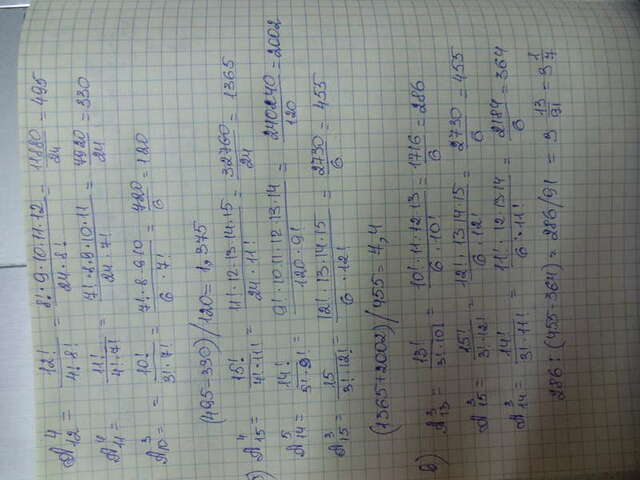 A⁴₁₂ = 12!/(4!·8!) = (8!·9·10·11·12)/(24·8!) = 11880/24 = 495
A⁴₁₁ = 11!/(4!·7!) = (7!·8·9·10·11)/(24·7!) = 7920/24 = 330
A³₁₀ = = 10!/(3!·7!) = (7!·8·9·10)/(6·7!) = 720/6 = 120
(495-330)/120 = 1,375
A⁴₁₅ = 15!/(4!·11!) = (11!·12·13·14·15)/(24·11!) = 32760/24 = 1365
A⁵₁₄ = 14!/(5!·9!) = (9!·10·11·12·13·14)/(120·9!) = 240240/120 = 2002
A³₁₅ = 15/(3!·12!) = (12!·13·14·15)/(6·12!) = 2730/6 = 455
(1365+2002)/455 = 7,4
в) A³₁₃ = 13!/(3!·10!) = (10!·11·12·13)/(6·10!) = 1716/6 = 286
A³₁₅ = 15!/(3!·12!) = (12!·13·14·15)/(6·12!) = 2730/6 = 455
A³₁₄ = 14!/(3!·11!) = (11!·12·13·14)/(6·11!) = 2184/6 = 364
286:(455-364) = 286/91 = 3 13/91 = 3 1/7